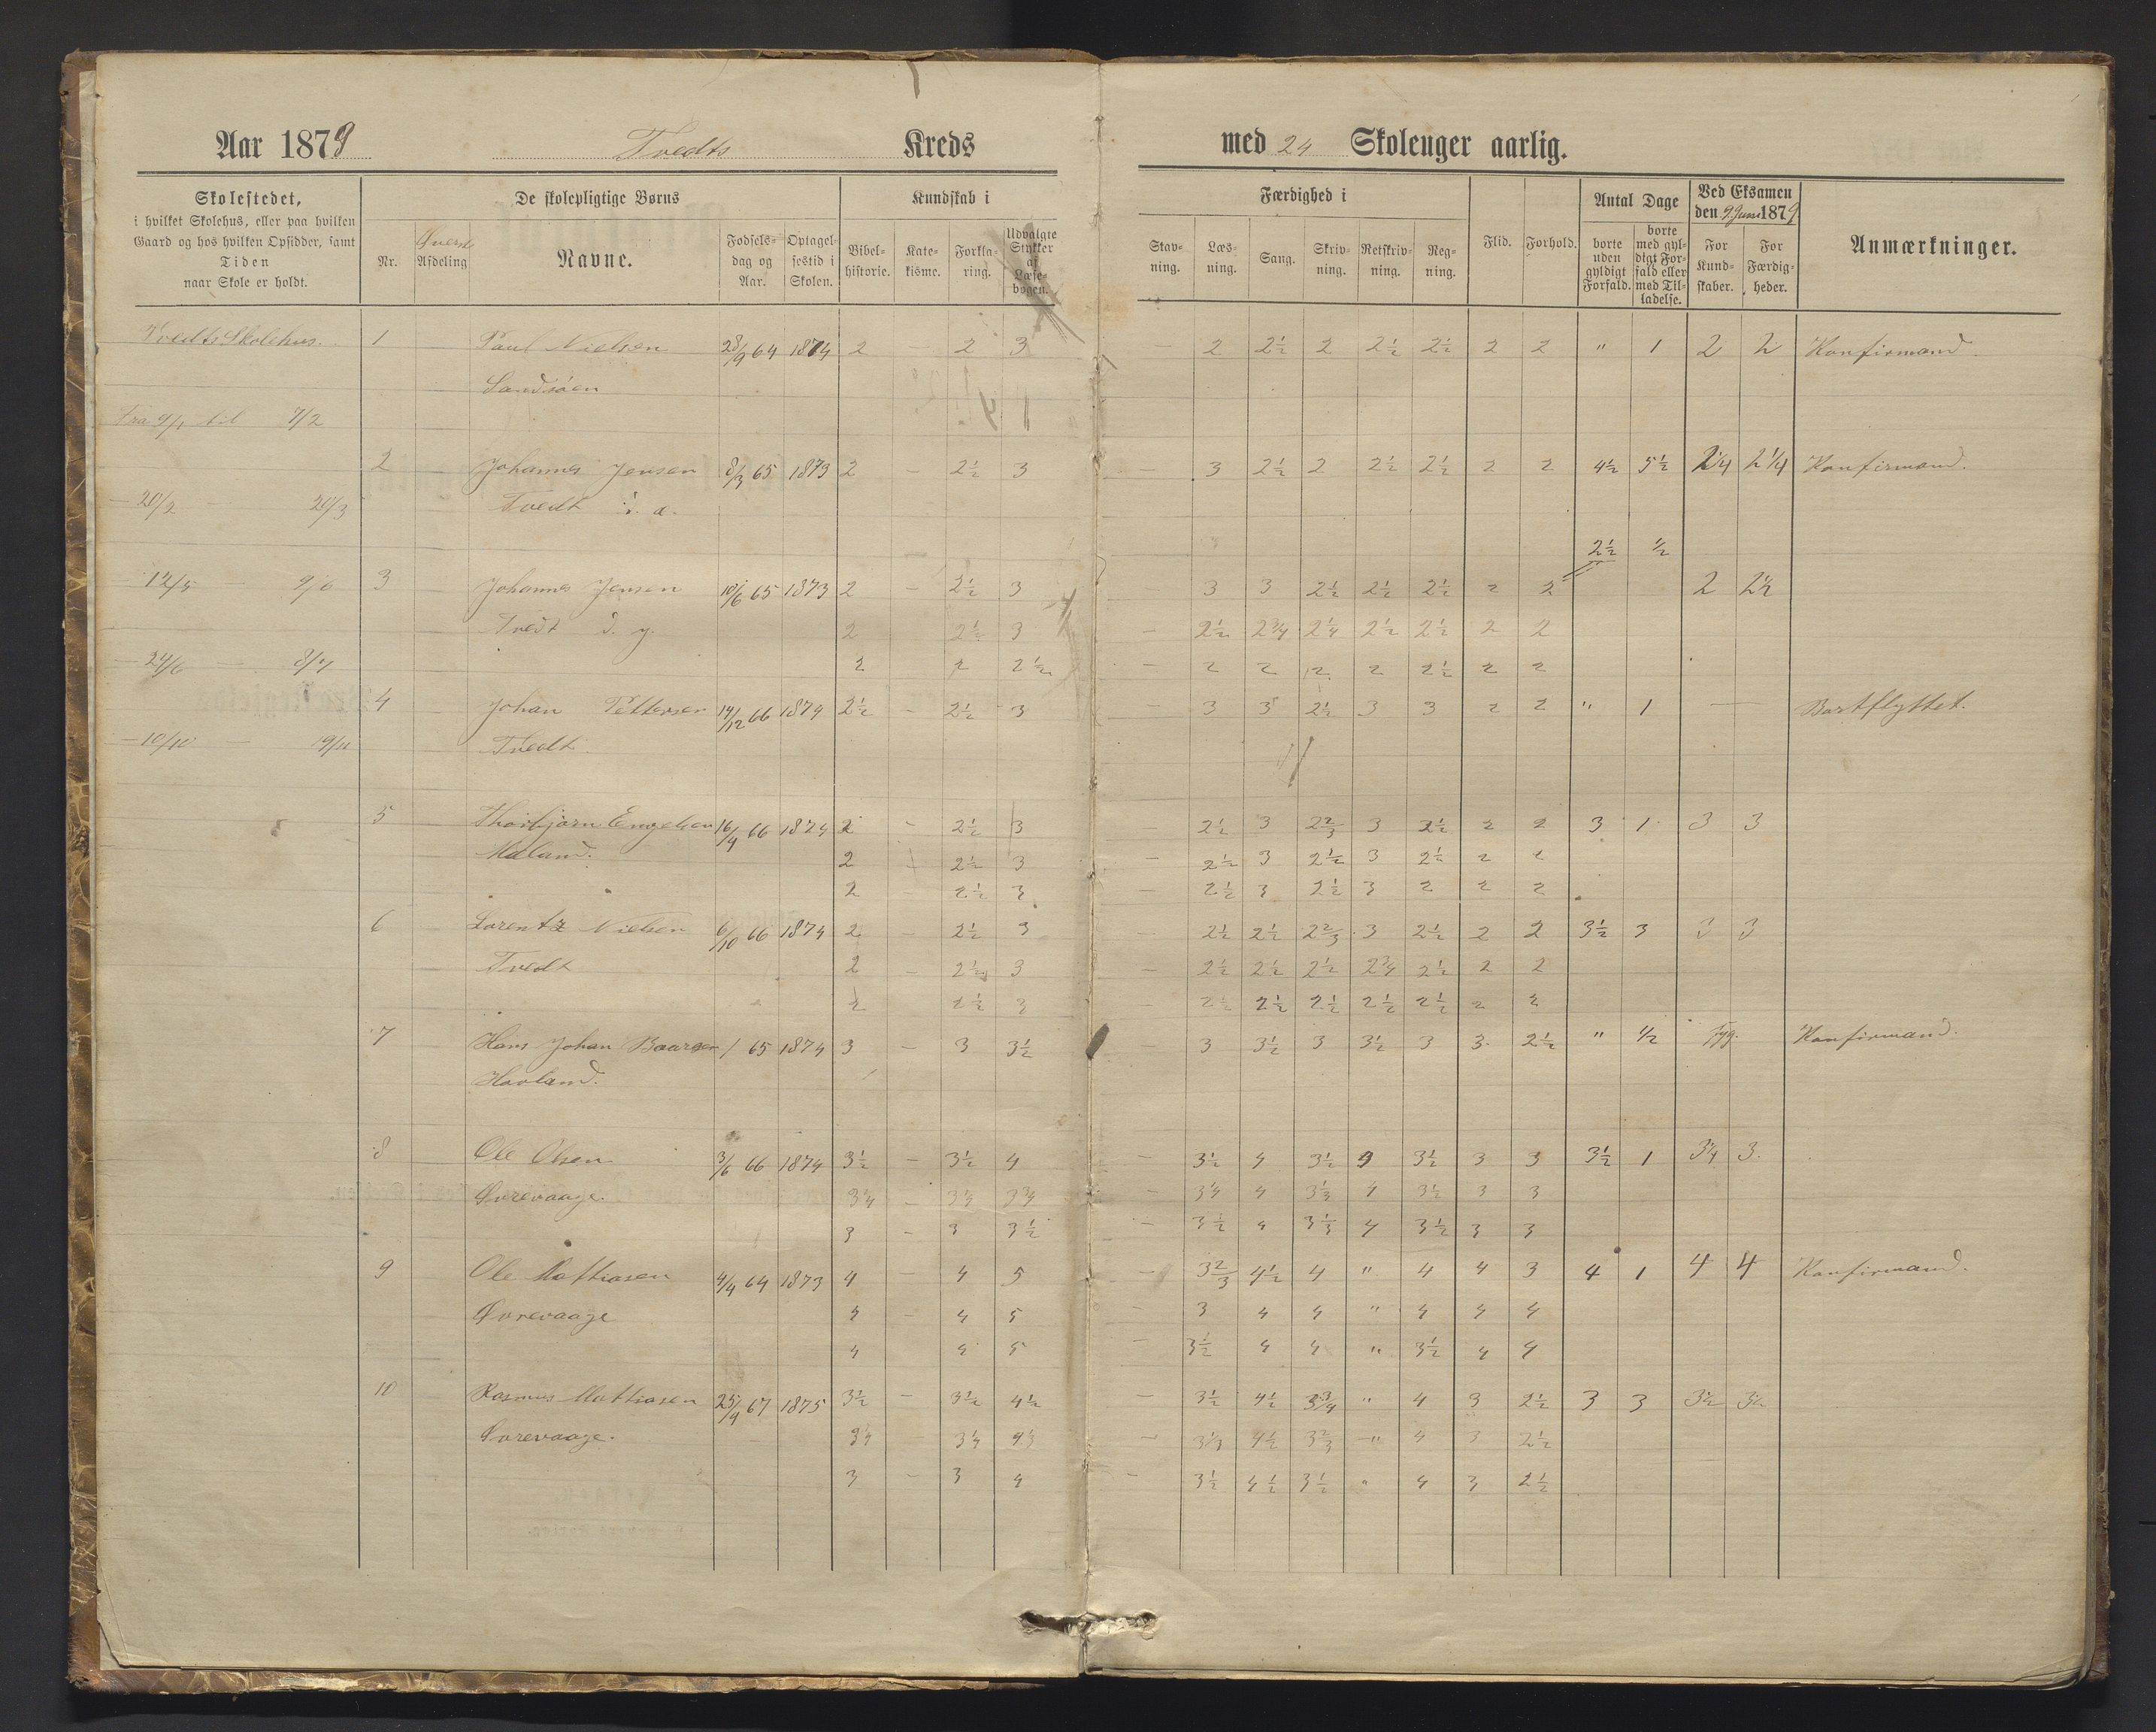 Aar 1879 Tvedts Kreds
med 24 Skoleuger aarlig.
Skolestedet,
i hvilket Skolehus, eller paa hvilken
Gaard og hos hvilken Opsidder, samt
Tiden
naar Skole er holdt.
De skolepligtige Børns
Nr.
Øverste
Afdeling
Navne.
Fødsels-
dag og
Aar.
Optagel-
sestid i
Skolen.
Kundskab i
Bibel-
historie.
Kate-
kisme.
Forkla-
ring.
Udvalgte
Stykker
af
Læse-
bogen.
Færdighed i
Stav-
ning.
Læs-
ning.
Sang.
Skriv-
ning.
Retskriv-
ning.
Reg-
ning.
Flid.
Forhold.
Antal Dage
borte
uden
gyldigt
Forfald.
borte
med gyl-
digt For-
fald eller
med Til-
ladelse.
Ved Eksamen
den 9 Juni 1879
For
Kund-
skaber.
For
Færdig-
heder.
Anmærkninger.
Tvedts Skolehus. 1 Paul Nielsen 28/9 64 1874 2 2 3 — 2 2½ 2 2½ 2½ 2 2 " 1 2 2 Konfirmand.
Sandsøen
Fra 9/1 til 7/2
2 Johannes Jensen 8/3 65 1873 2 - 2½ 3 — 3 2½ 2 2½ 2½ 2 2 4½ 5½ 2¼ 2¼ Konfirmand.
— 20/2 — 20/3 Tvedt i. a.
2½ ½
— 12/5 — 9/6 3 Johannes Jensen 10/6 65 1873 2 - 2½ 3 — 3 3 2½ 2½ 2½ 2 2 2 2½
Tvedt d. y. 2 2½ 3 — 2½ 2¾ 2¼ 2½ 2½ 2 2
— 24/6 — 8/7 2 2 2½ — 2 2 2 2 2½ 2 2
4 Johan Pettersen 14/12 66 1874 2½ - 2½ 3 — 3 3 2½ 3 3 2 2 " 1 — Bortflyttet.
— 10/10 — 19/11 Tvedt.
5 Thorbjørn Engelsen 16/9 66 1874 2 - 2½ 3 — 2½ 3 2⅔ 3 2½ 2 2 3 1 3 3
Mæland. 2 2½ 3 — 2½ 3 2½ 3 2½ 2 2
2 2½ 3 — 2½ 3 2½ 3 2 2 2
6 Lorentz Nielsen 6/10 66 1874 2 - 2½ 3 — 2½ 2½ 2⅔ 3 2½ 2 2 3½ 3 3 3
Tvedt 2 - 2½ 3 — 2½ 2½ 2½ 2¾ 2½ 2 2
2 2½ 3 — 2½ 2½ 2½ 2½ 2½ 2 2
7 Hans Johan Baarsen / 65 1874 3 - 3 3½ — 3 3½ 3 3½ 3 3 2½ " ½ syg. Konfirmand.
Hovland.
8 Ole Olsen 3/6 66 1874 3½ - 3½ 4 — 3½ 4 3½ 4 3½ 3 3 3½ 1 3¼ 3
Øvrevaage. 3¼ - 3¼ 3¾ — 3¼ 4 3⅓ 4 3½ 3 3
3 - 3 3½ — 3½ 4 3⅓ 4 3½ 3 3
9 Ole Mathiasen 4/4 64 1873 4 - 4 5 — 3⅔ 4½ 4 " 4 4 3 4 1 4 4 Konfirmand.
Øvrevaage 4 - 4 5 — 3 4 4 " 4 4 4
4 4 5 — 3½ 4 4 " 3½ 4 4
10 Rasmus Mathiasen 25/9 67 1875 3½ - 3½ 4½ — 3½ 4½ 3¾ " 4 3 2½ 3 3 3½ 3½
Øvrevaage. 3¼ - 3¼ 4⅓ — 3⅓ 4½ 3⅔ " 4 3 2½
3 - 3 4 — 3½ 4½ 3½ " 4 3 2½